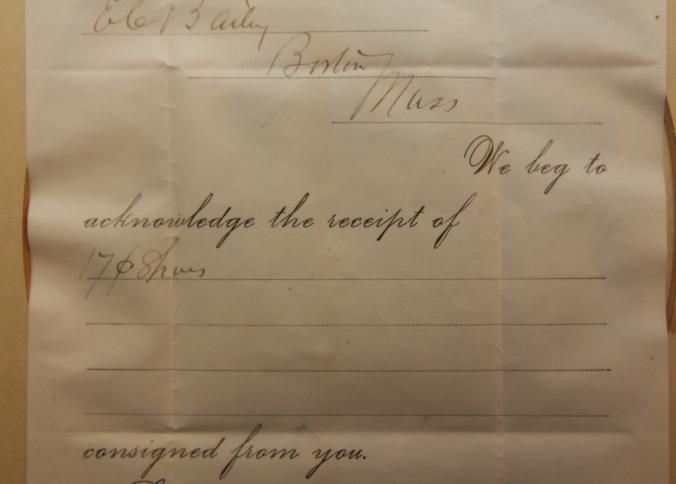 E C Bailey
Boston
Mass
We beg to
acknowledge the receipt of
17 Shoes
consigned from you.